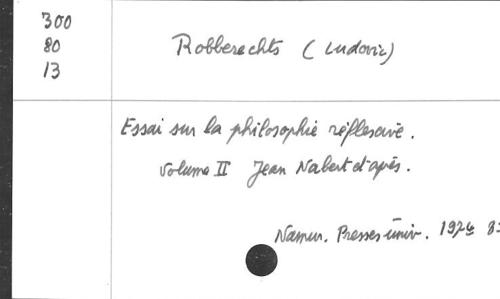 300
80
13
Robberechts (Ludovic)
Essai sur la philosophie réflexive.
Volume II Jean Nabert d'après.
Namur. Presses univ. 1974